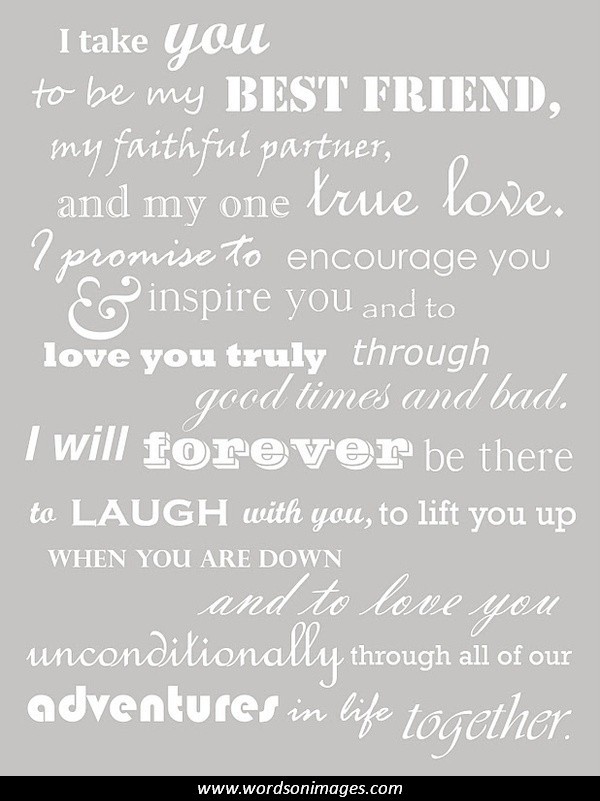 I take you
to be my BEST FRIEND,
my faithful partner,
and my one true love.
I promise to encourage you
& inspire you and to
love you truly through
good times and bad.
I will forever be there
to LAUGH with you, to lift you up
WHEN YOU ARE DOWN
and to love you
unconditionally through all of our
adventures in life together.
www.wordsonimages.com